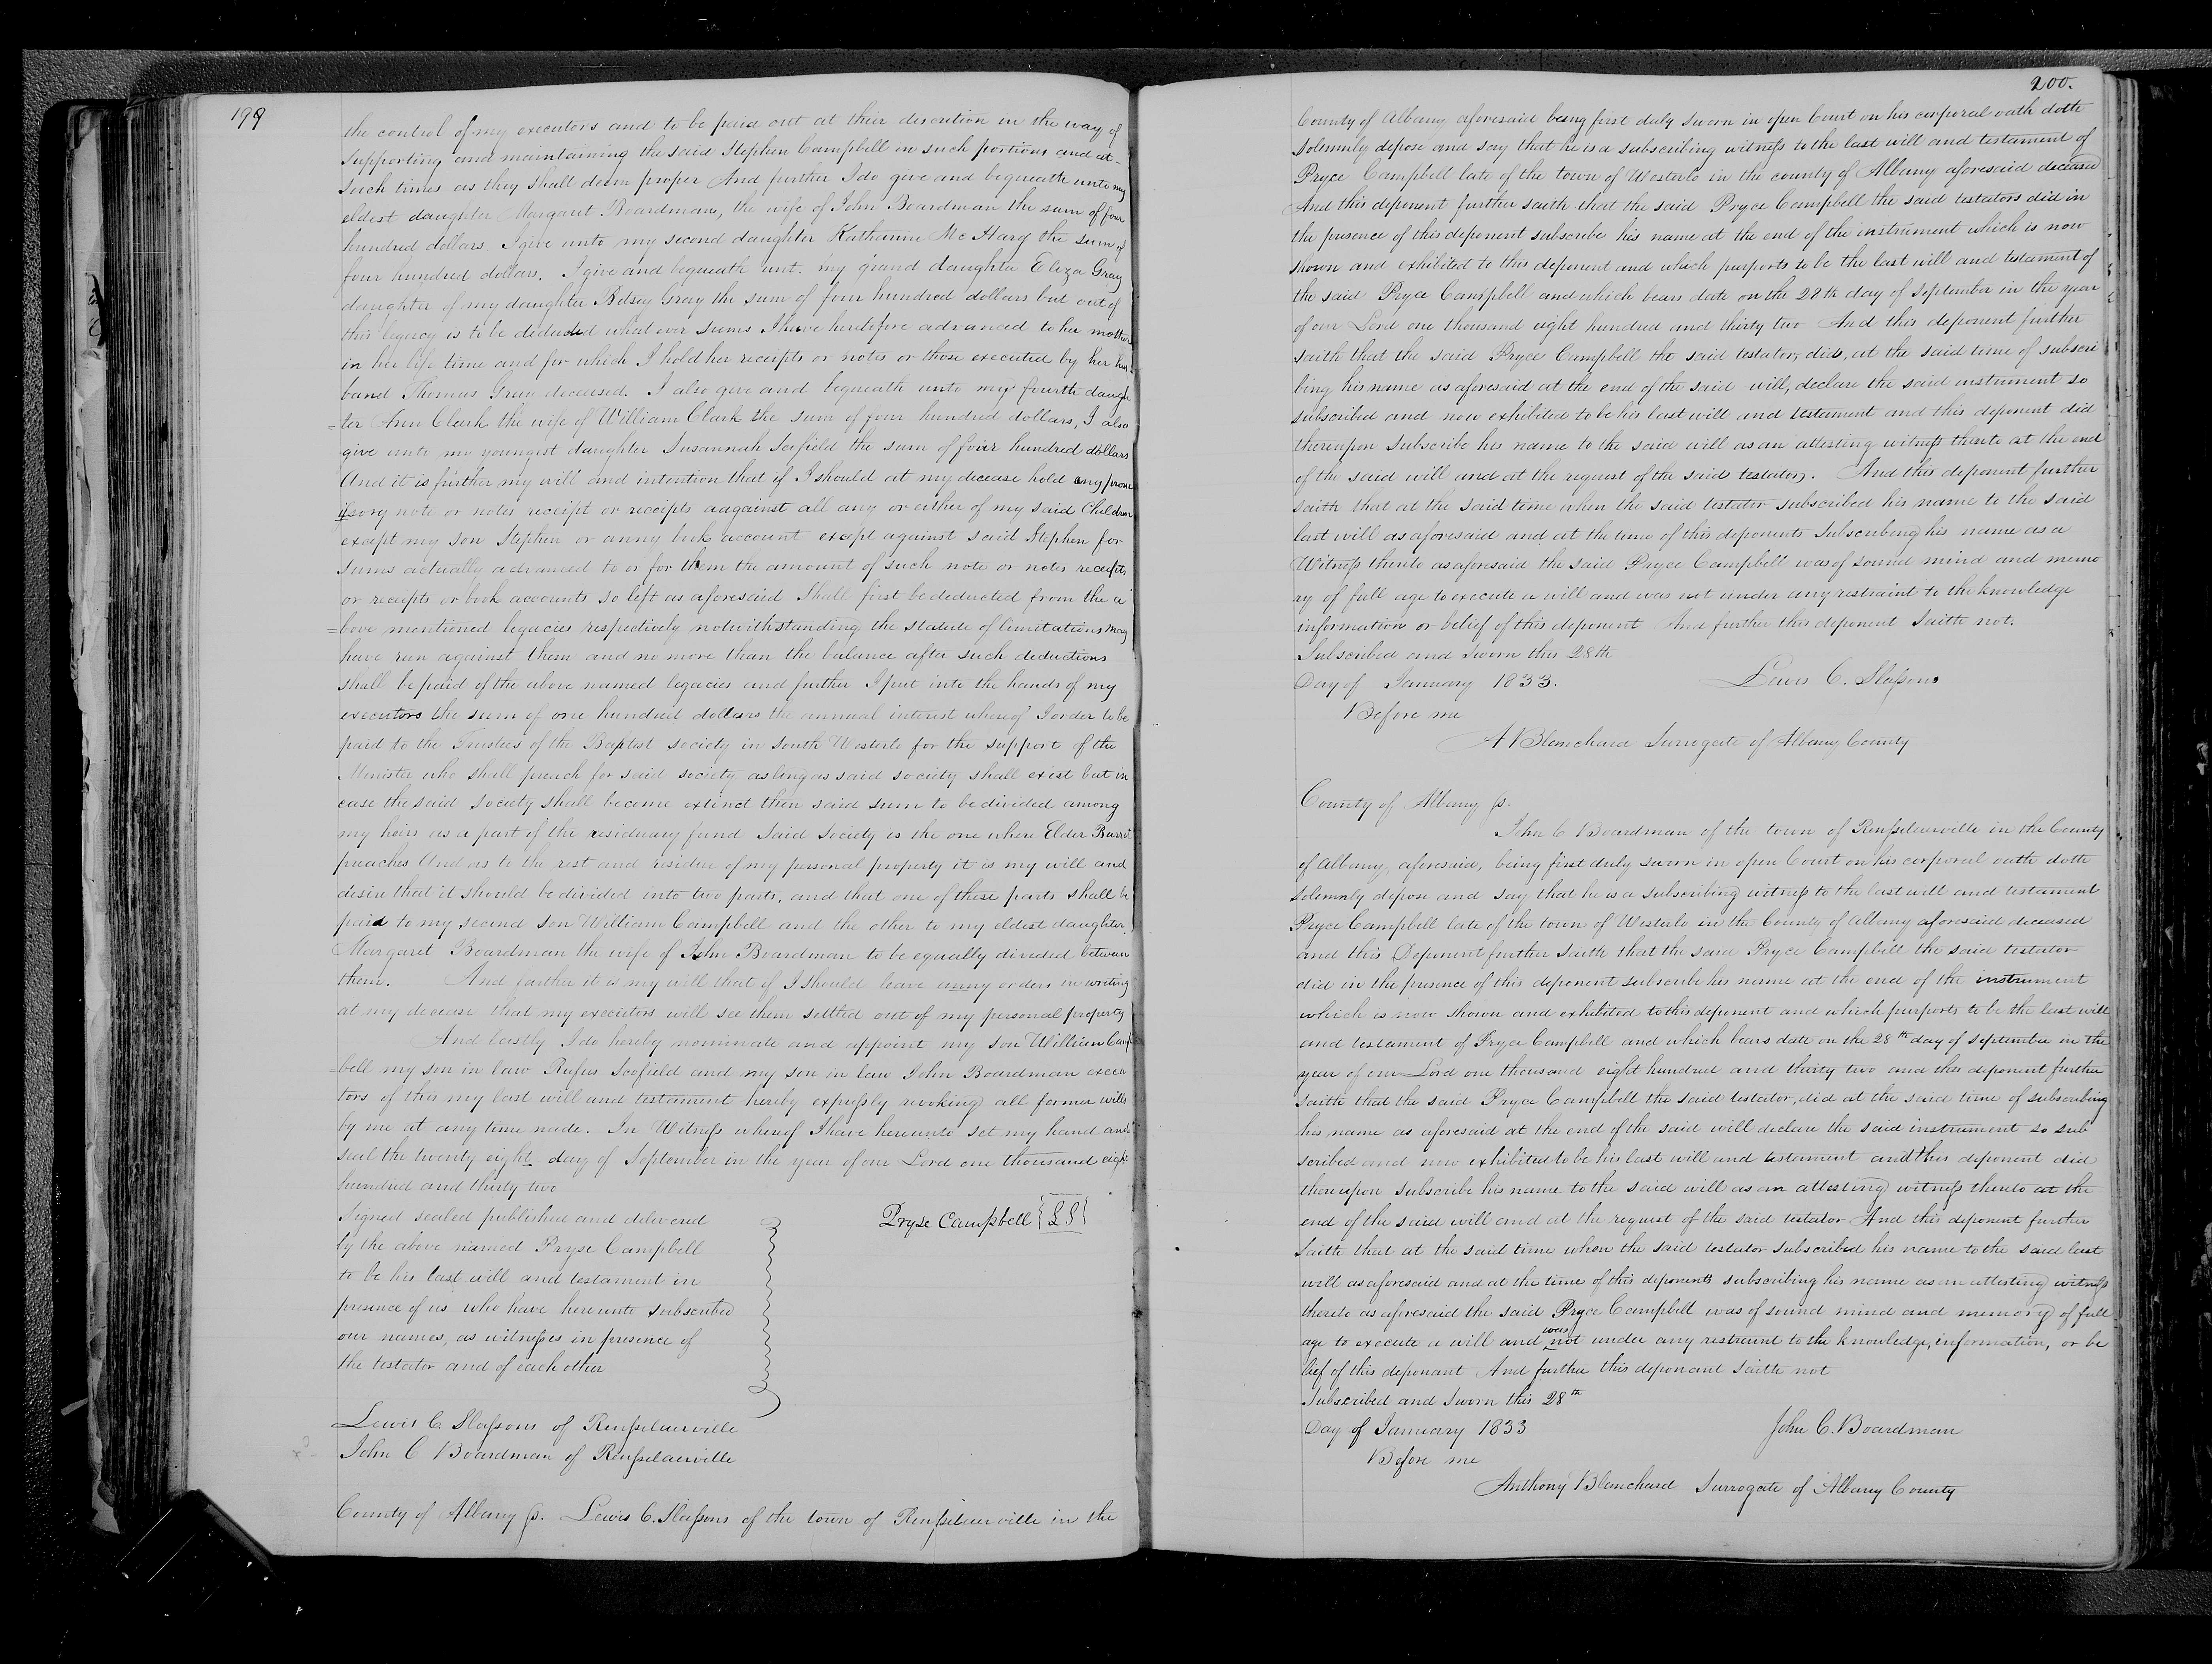 199
the control of my executors and to be paid out at their discretion in the way of
supporting and maintaining the said Stephen Campbell in such portions and at
such times as they shall deem proper And further I do give and bequeath unto my
eldest daughter Margaret Boardman, the wife of John Boardman the sum of four
hundred dollars. I give unto my second daughter Katharine Mc Harg the sum of
four hundred dollars. I give and bequeath unt. my grand daughter Eliza Gray
daughter of my daughter Betsey Gray the sum of four hundred dollars but out of
this legacy is to be deducted what ever sums I have heretofore advanced to her mother
in her life time and for which I hold her receipts or notes or those executed by her hus
band Thomas Gray deceased. I also give and bequeath unto my fourth daugh
=ter Ann Clark the wife of William Clark the sum of four hundred dollars, I also
give unto my youngest daughter Susannah Scofield the sum of four hundred dollars
And it is further my will and intention that if I should at my decease hold any prom
issory note or notes receipt or receipts aagainst all any or either of my said Children
except my son Stephen or anny book account except against said Stephen for
sums actually advanced to or for them the amount of such note or notes receipts
or receipts or book accounts so left as aforesaid shall first be deducted from the a
=bove mentioned legacies respectively notwithstanding the statute of limitations may
have run against them and no more than the balance after such deductions
shall be paid of the above named legacies and further I put into the hands of my
executors the sum of one hundred dollars the annual interest whereof I order to be
paid to the Trustees of the Baptist society in South Westerlo for the support of the
Minister who shall preach for said society as long as said society shall exist but in
case the said society shall become extinct then said sum to be divided among
my heirs as a part of the residuary fund Said Society is the one where Elder Barret
preaches And as to the rest and residue of my personal property it is my will and
desire that it should be divided into two parts, and that one of those parts shall be
paid to my second son William Campbell and the other to my eldest daughter
Margaret Boardman the wife of John Boardman to be equally divided between
them. And further it is my will that if I should leave anny orders in writing
at my decease that my executors will see them settled out of my personal property
And lastly I do hereby nominate and appoint my son William Camp
=bell my son in law Rufus Scofield and my son in law John Boardman execu
tors of this my last will and testament hereby expressly revoking all former wills
by me at any time made. In Witness whereof I have hereunto set my hand and
seal the twenty eight day of September in the year of our Lord one thousand eight
hundred and thirty two
Signed sealed published and delivered
Pryse Campbell {L S}
by the above named Pryse Campbell
to be his last will and testament in
presence of us who have hereunto subscribed
our names, as witnesses in presence of
the testator and of each other
Lewis C. Slassons of Rensselaerville
John C Boardman of Rensselaerville
County of Albany ss. Lewis C. Slassons of the town of Rensselaerville in the
200.
County of Albany aforesaid being first duly sworn in open Court on his corporal oath doth
solemnly depose and say that he is a subscribing witness to the last will and testament of
Pryce Campbell late of the town of Westerlo in the county of Albany aforesaid deceased
And this deponent further saith that the said Pryce Campbell the said testators did in
the presence of this deponent subscribe his name at the end of the instrument which is now
shown and exhibited to this deponent and which purports to be the last will and testament of
the said Pryce Campbell and which bears date on the 28th day of September in the year
of our Lord one thousand eight hundred and thirty two And this deponent further
saith that the said Pryce Campbell the said testator, did, at the said time of subscri
bing his name as aforesaid at the end of the said will, declare the said instrument so
subscribed and now exhibited to be his last will and testament and this deponent did
thereupon subscribe his name to the said will as an attesting witness thereto at the end
of the said will and at the request of the said testators. And this deponent further
saith that at the said time when the said testator subscribed his name to the said
last will as aforesaid and at the time of this deponents subscribing his name as a
Witness thereto as aforesaid the said Pryce Campbell was of sound mind and memo
ry of full age to execute a will and was not under any restraint to the knowledge
information or belief of this deponent And further this deponent saith not.
Subscribed and sworn this 28th
Day of January 1833.
Lewis C. Slassons
Before me
A Blanchard Surrogate of Albany County
County of Albany ss.
John C Boardman of the town of Rensselaerville in the County
of Albany, aforesaid, being first duly sworn in open Court on his corporal oath doth
solemnly depose and say that he is a subscribing witness to the last will and testament
Pryce Campbell late of the town of Westerlo in the County of Albany aforesaid deceased
and this Deponent further saith that the said Pryce Campbell the said testator
did in the presence of this deponent subscribe his name at the end of the instrument
which is now shown and exhibited to this deponent and which purports to be the last will
and testament of Pryce Campbell and which bears date on the 28th day of September in the
year of our Lord one thousand eight hundred and thirty two and this deponent further
saith that the said Pryce Campbell the said testator, did at the said time of subscribing
his name as aforesaid at the end of the said will declare the said instrument so sub
scribed and now exhibited to be his last will and testament and this deponent did
thereupon subscribe his name to the said will as an attesting witness thereto at the
end of the said will and at the request of the said testator And this deponent further
saith that at the said time when the said testator subscribed his name to the said last
will as aforesaid and at the time of this deponents subscribing his name as an attesting witness
thereto as aforesaid the said Pryce Campbell was of sound mind and memory of full
age to execute a will and was not under any restraint to the knowledge, information, or be
lief of this deponant And further this deponant saith not
Subscribed and sworn this 28th
Day of January 1833
John C. Boardman
Before me
Anthony Blanchard Surrogate of Albany County